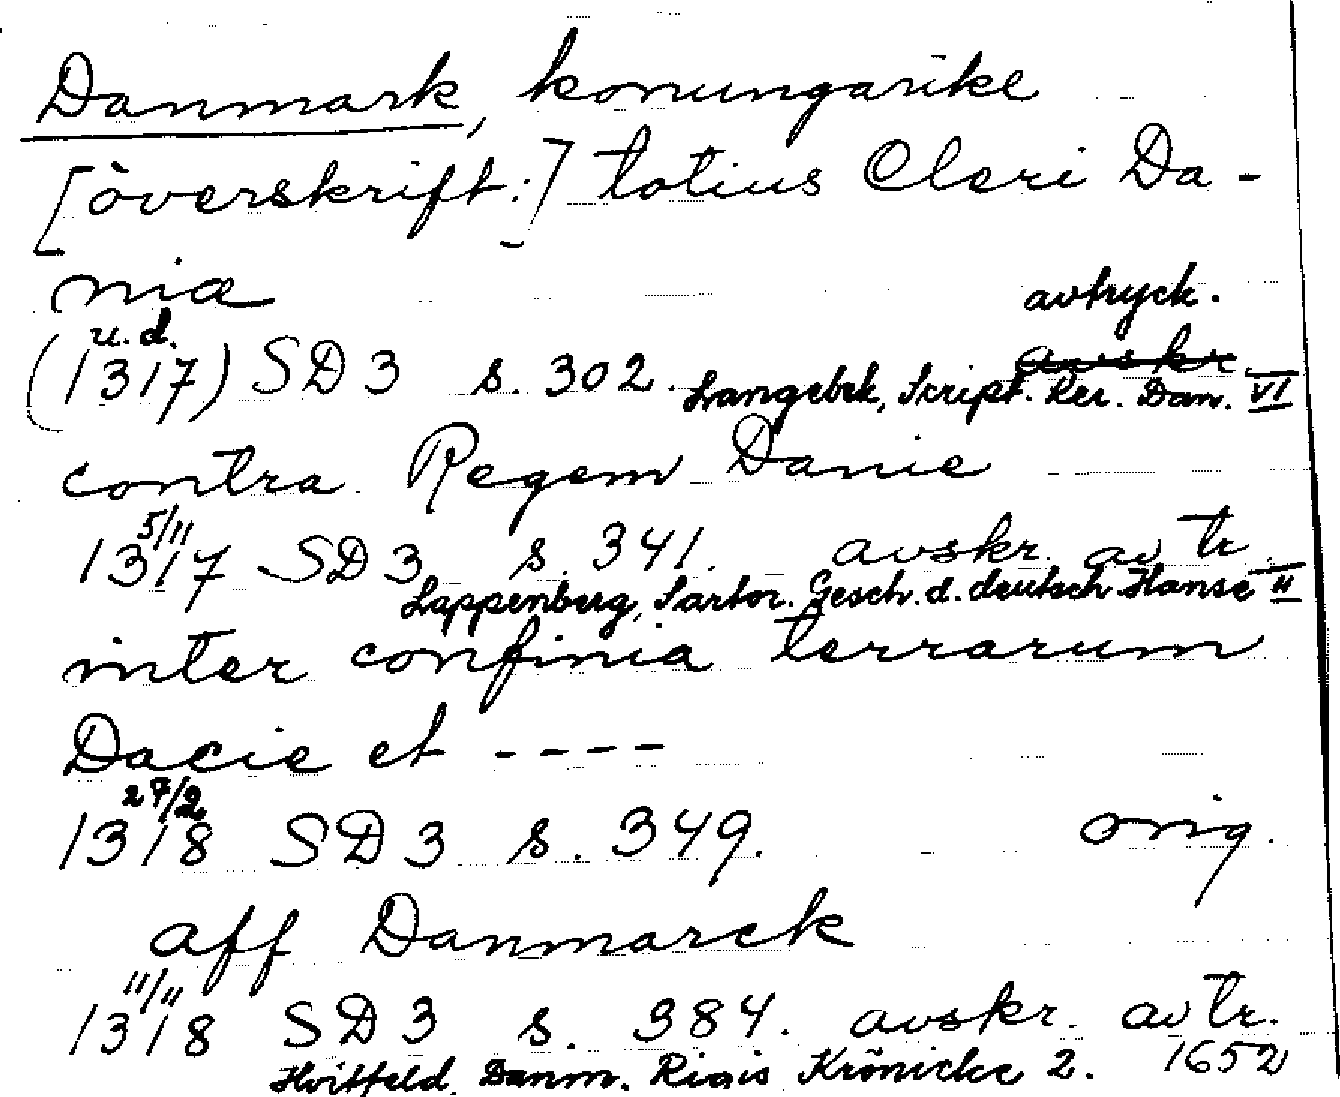 Danmark, konungarike
[överskrift:] totius Cleri Da-
niæ
avtryck.
u.d.
(1317) SD 3 s. 302. avskr
Langebek, Script. Rer. Dan. VI
contra Regem Danie
5/11
1317 SD 3 s. 341. avskr. avtr.
Lappenberg, Sartor. Gesch. d. deutsch. Hanse II
inter confinia terrarum
Dacie et ----
27/2
1318 SD 3 s. 349. orig.
aff Danmarck
11/11
1318 SD 3 s. 384. avskr. avtr.
Hvitfeld Danm. Rigis Krönicke 2. 1652